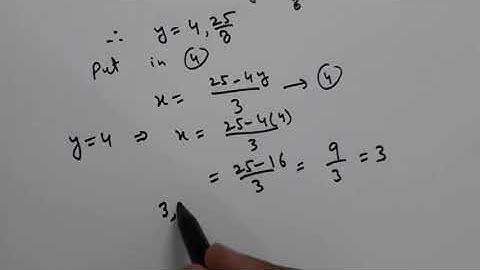 ∴ y = 4, 25/3
Put in ④
x = 25-4y/3 → ④
y=4 ⇒ x = 25-4(4)/3
= 25-16/3 = 9/3 = 3
3,